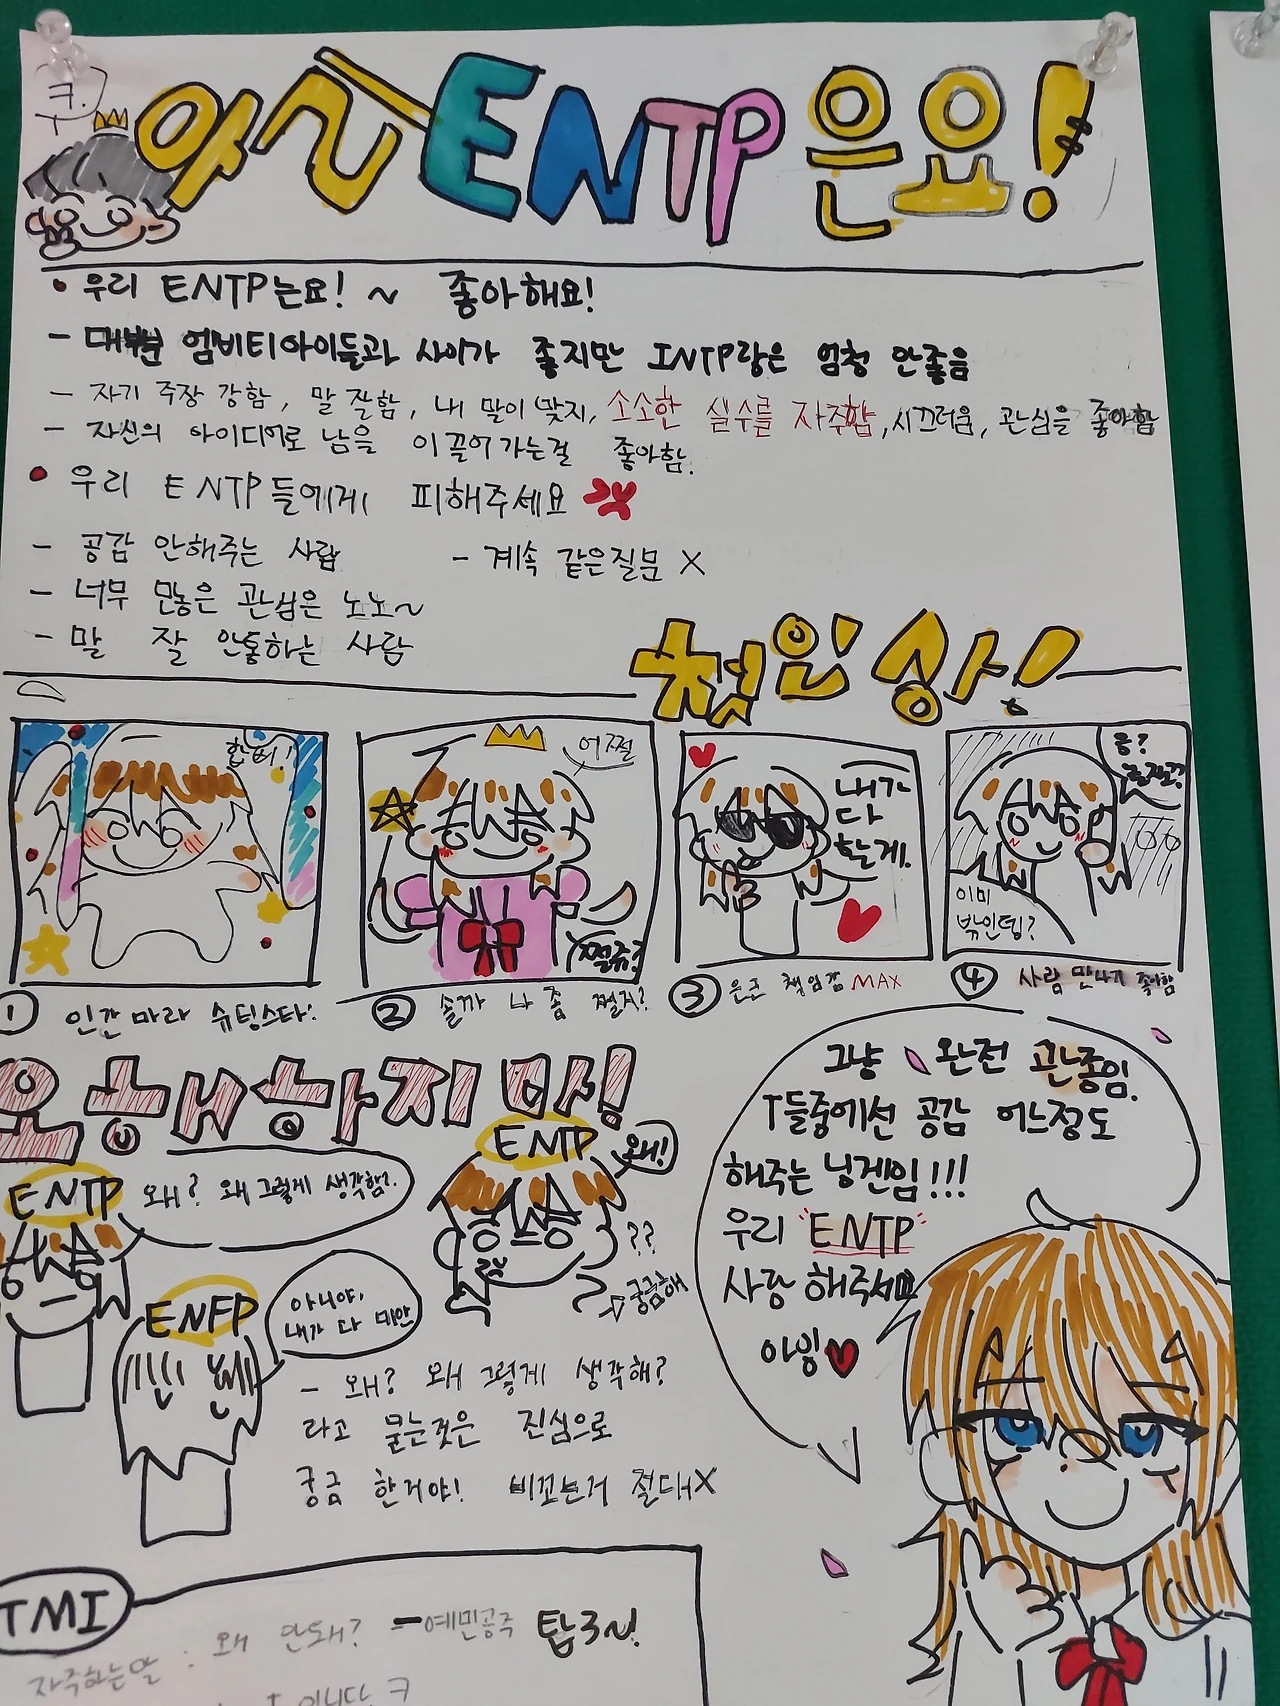 ㅋ.
ENTP은요!
• 우리 ENTP는요! ~ 좋아해요!
- 대부분 엠비티아이들과 사이가 좋지만 INTP랑은 엄청 안좋음
- 자기 주장 강함, 말 잘함, 내 말이 맞지, 소소한 실수를 자주함, 시끄러움, 관심을 좋아함
- 자신의 아이디어로 남을 이끌어가는걸 좋아함.
• 우리 ENTP들에게 피해주세요
- 공감 안해주는 사람
- 계속 같은질문 X
- 너무 많은 관심은 노노~
- 말 잘 안통하는 사람
첫인상!
합비!
어쩔
쩔쥬?
내가
다
할게.
응?
이미
밖인뎅?
① 인간 마라 슈팅스타!
② 솔까 나 좀 쩔지?
③ 은근 책임감 MAX
④ 사람 만나기 좋아함
오해하지 마!
ENTP
왜? 왜 그렇게 생각함?
ENTP
왜!
??
궁금해
ENFP
아니야,
내가 다 미안
- 왜? 왜 그렇게 생각해?
라고 묻는것은 진심으로
궁금 한거야! 비꼬는거 절대X
그냥 완전 관종임.
T들중에선 공감 어느정도
해주는 닝겐임!!!
우리 "ENTP"
사랑 해주세요
아잉♥
TMI
자주하는말 : 왜 안돼? -예민공주 탑3~!